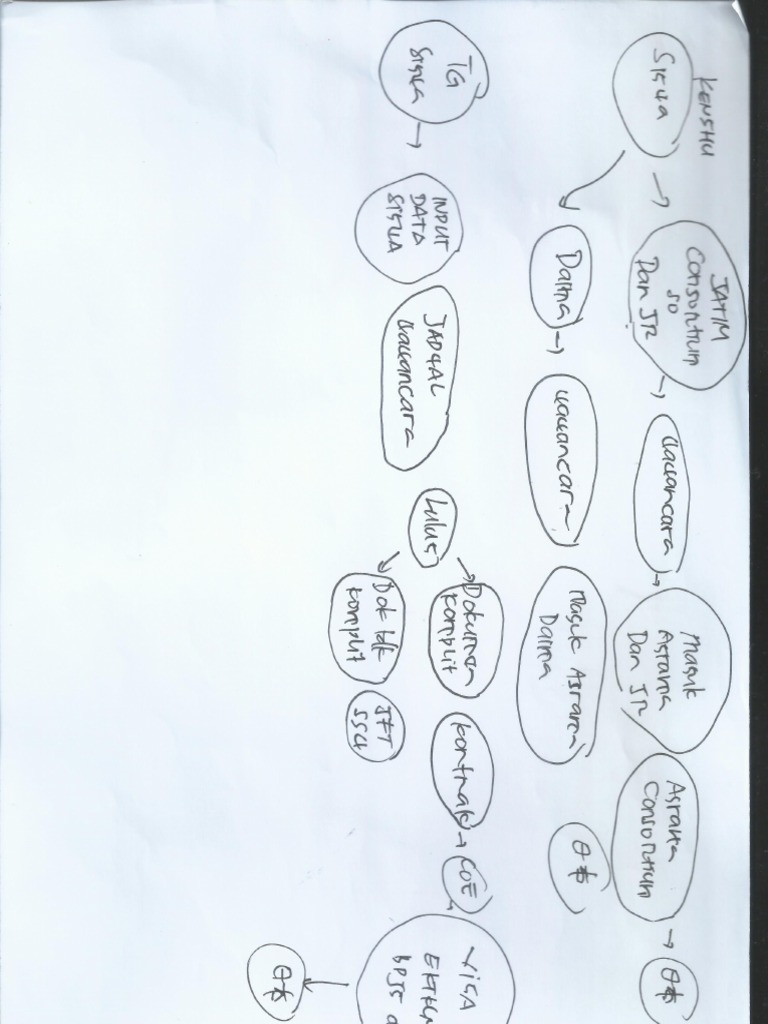 KENSHU
SISWA
JATIM
Consortium
SO
Dan JR
Wawancara
Masuk
Asrama
Dan JR
Asrama
Consortium
日本
Daima
Wawancara
Masuk Asrama
Daima
日本
TG
SISWA
INPUT
DATA
SISWA
JADWAL
Wawancara
Lulus
Dokumen
Komplit
Kontrak
COE
VISA
日本
Dok tdk
Komplit
JFT
SSW